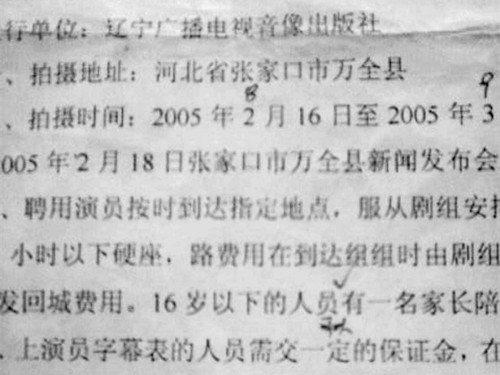 行单位：辽宁广播电视音像出版社
、拍摄地址：河北省张家口市万全县
8 9
、拍摄时间：2005 年 2 月 16 日至 2005 年 3
005 年 2 月 18 日张家口市万全县新闻发布会
、聘用演员按时到达指定地点，服从剧组安排
小时以下硬座，路费用在到达组组时由剧组
发回城费用。16 岁以下的人员有一名家长陪
．上演员字幕表的人员需交一定的保证金，在